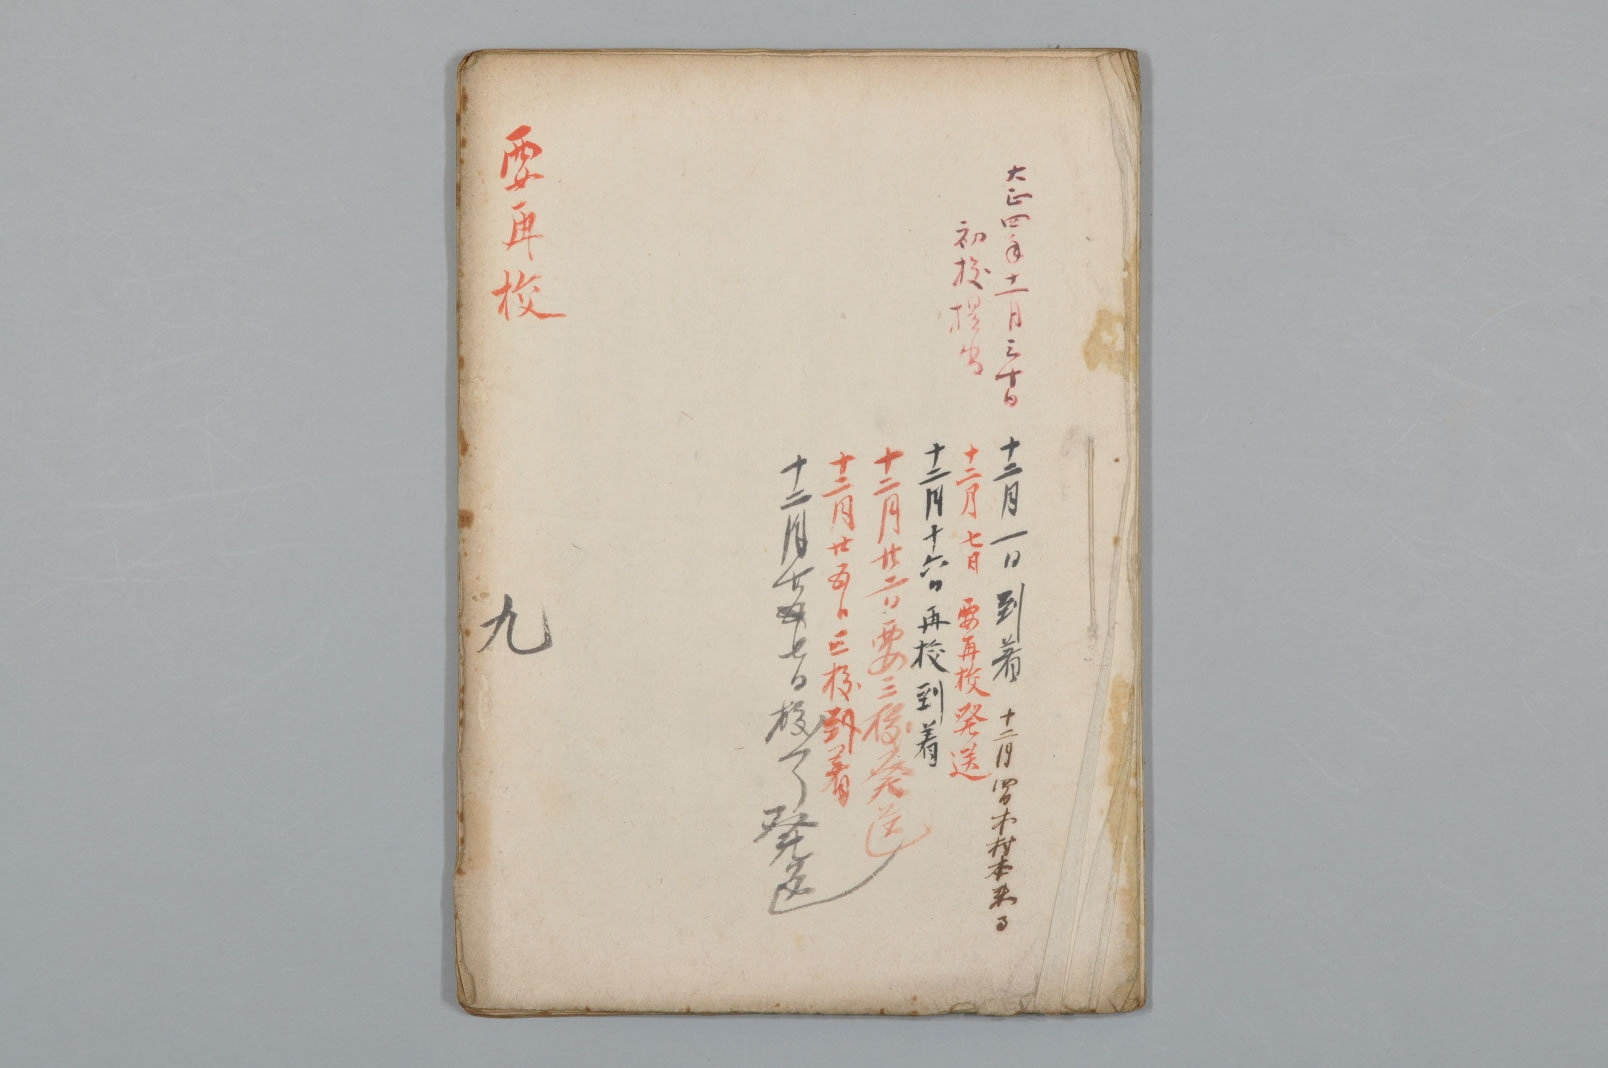 大正四年十一月三十日
初校提出
十二月一日到着 十二月四日木村本来る
十二月七日 要再校発送
十二月十六日再校到着
十二月廿二日要三校発送
十二月廿五日三校到着
十二月廿七日校了発送
要再校
九